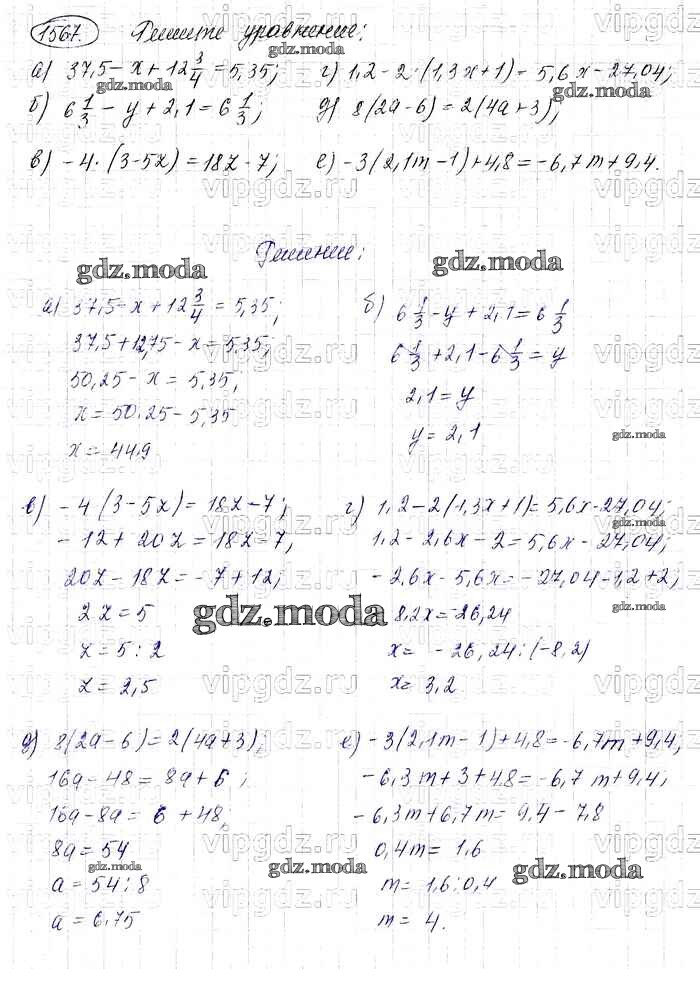 1567. Решите уравнение:
а) 37,5 - x + 12 3/4 = 5,35; г) 1,2 - 2·(1,3x + 1) = 5,6x - 27,04;
б) 6 1/3 - y + 2,1 = 6 1/3; д) 8(2a - 6) = 2(4a + 3);
в) - 4·(3 - 5z) = 18z - 7; е) -3(2,1m - 1) + 4,8 = -6,7m + 9,4.
Решение:
а) 37,5 - x + 12 3/4 = 5,35;
37,5 + 12,75 - x = 5,35;
50,25 - x = 5,35;
x = 50,25 - 5,35
x = 44,9
б) 6 1/3 - y + 2,1 = 6 1/3
6 1/3 + 2,1 - 6 1/3 = y
2,1 = y
y = 2,1
в) - 4(3 - 5z) = 18z - 7;
- 12 + 20z = 18z - 7;
20z - 18z = - 7 + 12;
2z = 5
z = 5 : 2
z = 2,5
г) 1,2 - 2(1,3x + 1) = 5,6x - 27,04;
1,2 - 2,6x - 2 = 5,6x - 27,04;
- 2,6x - 5,6x = - 27,04 - 1,2 + 2;
8,2x = -26,24
x = - 26,24 : (-8,2)
x = 3,2
д) 8(2a - 6) = 2(4a + 3);
16a - 48 = 8a + 6;
16a - 8a = 6 + 48;
8a = 54
a = 54 : 8
a = 6,75
е) -3(2,1m - 1) + 4,8 = -6,7m + 9,4;
-6,3m + 3 + 4,8 = -6,7m + 9,4;
-6,3m + 6,7m = 9,4 - 7,8
0,4m = 1,6
m = 1,6 : 0,4
m = 4.
gdz.moda
vipgdz.ru